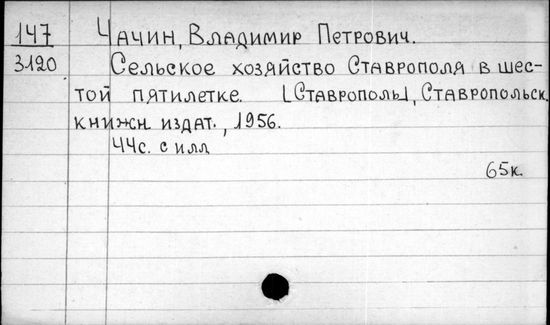 147 Чачин, Владимир Петрович.
3120 Сельское хозяйство Ставрополя в шес-
той пятилетке. [Ставрополь], Ставропольск.
книжн. издат., 1956.
44с. с илл
65к.